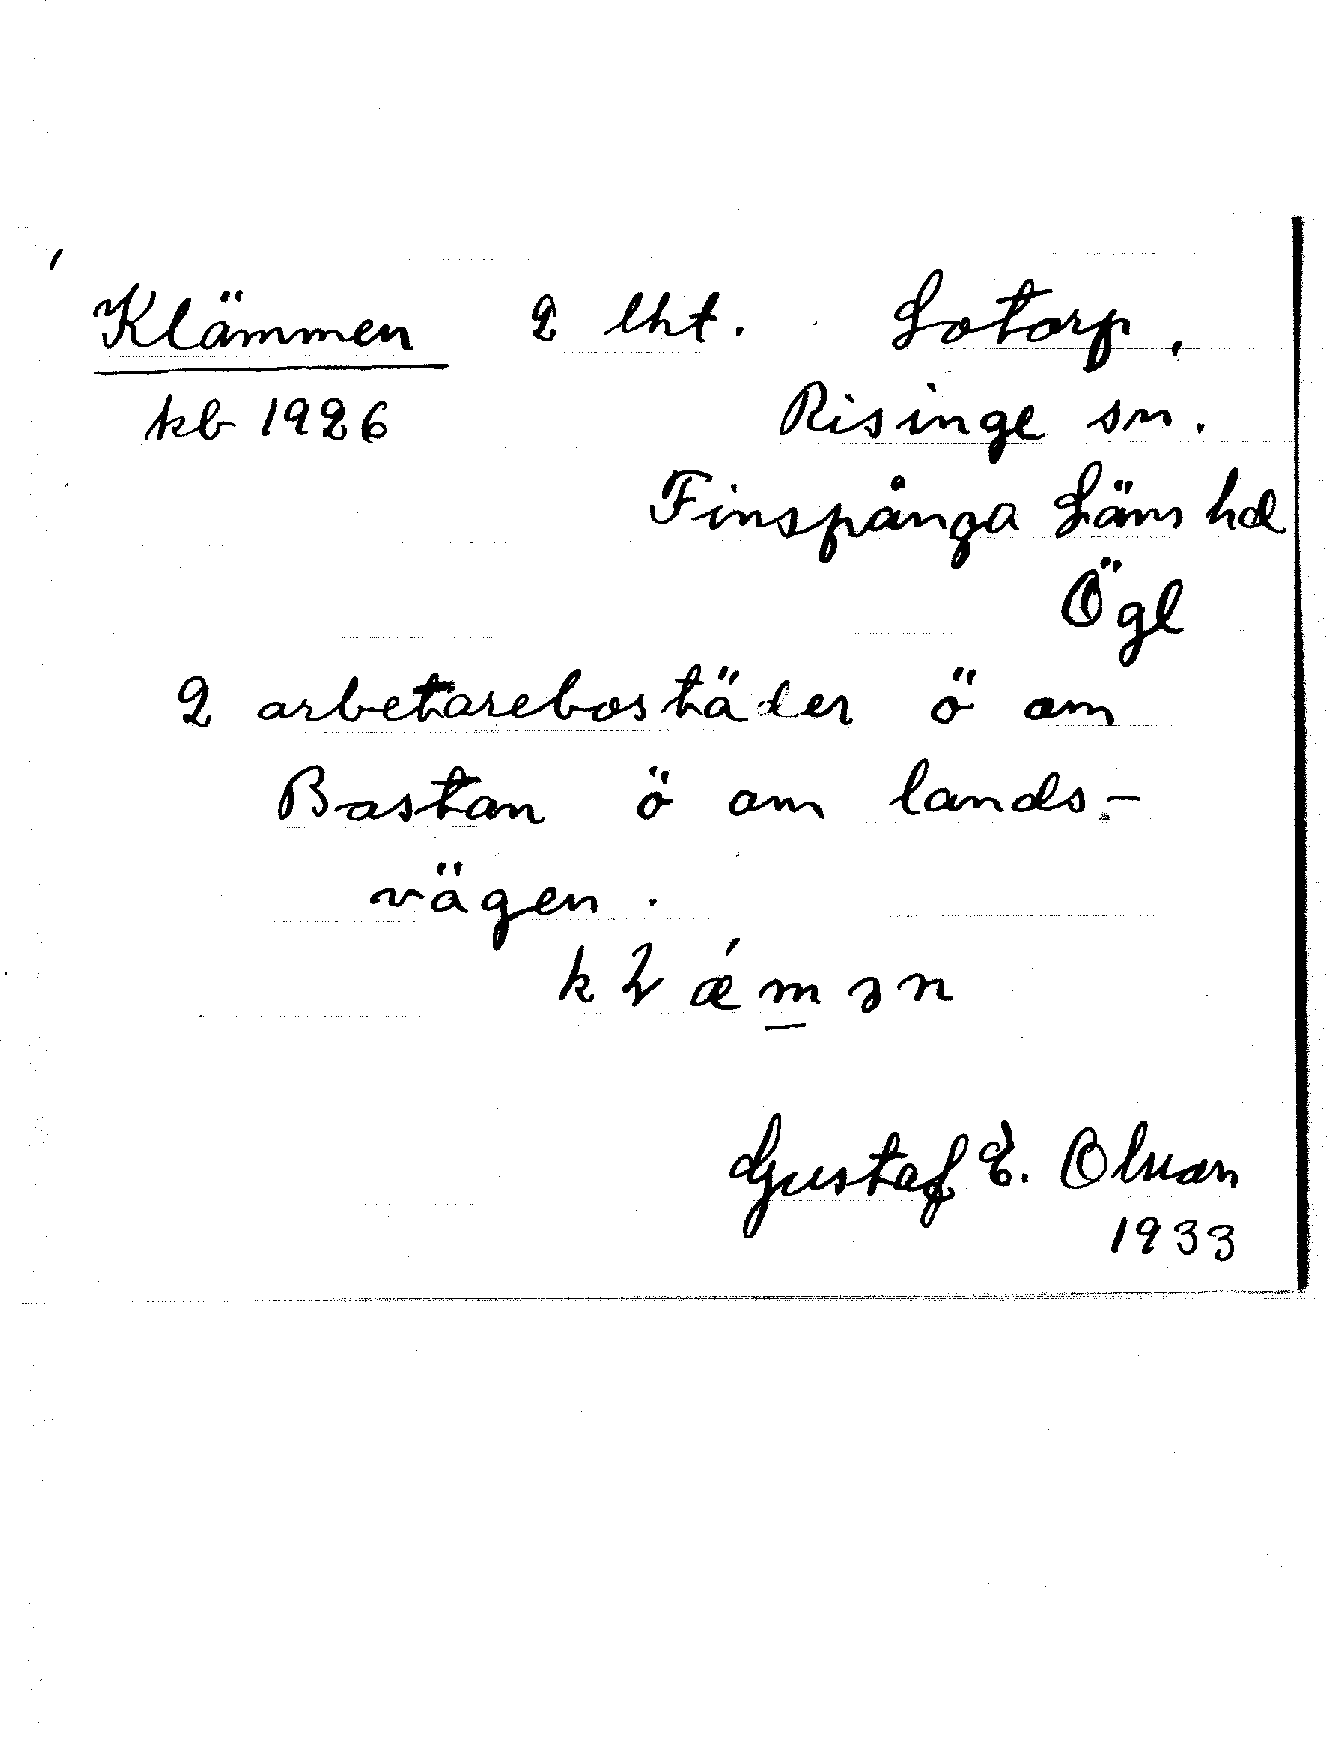 Klämmen 2 lht. Lotorp.
kb 1926 Risinge sn.
Finspånga Läns hd
Ögl
2 arbetarebostäder ö om
Bastan ö om lands-
vägen.
kɫǽm̲ən
Gustaf E. Olsson
1933